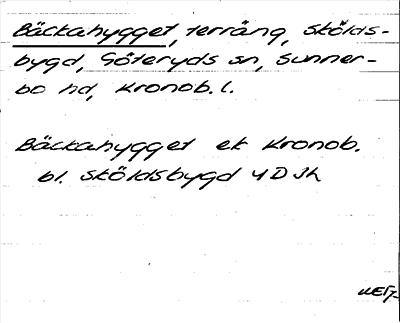 Bäckahygget, terräng, Skölds-
bygd, Göteryds sn, Sunner-
bo hd, Kronob. l.
Bäckahygget ek Kronob.
bl. Sköldsbygd 4D3h